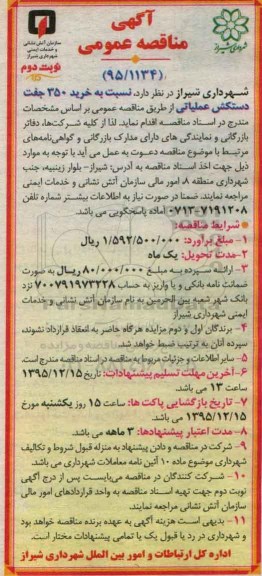 آگهی
مناقصه عمومی
(۹۵/۱۱۳۴)
سازمان آتش نشانی
و خدمات ایمنی
شهرداری شیراز
نوبت دوم
شهرداری شیراز
شهرداری شیراز در نظر دارد، نسبت به خرید ۳۵۰ جفت
دستکش عملیاتی از طریق مناقصه عمومی بر اساس مشخصات
مندرج در اسناد مناقصه اقدام نماید. لذا از کلیه شرکت‌ها، دفاتر
بازرگانی و نمایندگی های دارای مدارک بازرگانی و گواهی‌نامه‌های
مرتبط با موضوع مناقصه دعوت به عمل می آید با توجه به موارد
ذیل جهت اخذ اسناد مناقصه به آدرس: شیراز- بلوار زینبیه، جنب
شهرداری منطقه ۸ امور مالی سازمان آتش نشانی و خدمات ایمنی
مراجعه نمایند. ضمنا در صورت نیاز به اطلاعات بیشتر شماره تلفن
۰۷۱۳-۷۱۹۱۲۰۸ آماده پاسخگویی می باشد.
شرایط مناقصه:
۱- مبلغ برآورد: ۱/۵۹۲/۵۰۰/۰۰۰ ریال
۲-مدت تحویل: یک ماه
۳- ارائه سپرده به مبلغ ۸۰/۰۰۰/۰۰۰ ریال به صورت
ضمانت نامه بانکی و یا واریز به حساب ۷۰۰۷۹۱۹۷۳۲۲۸ نزد
بانک شهر شعبه بین الحرمین به نام سازمان آتش نشانی و خدمات
ایمنی شهرداری شیراز
۴- برندگان اول و دوم مزایده هرگاه حاضر به انعقاد قرارداد نشوند،
سپرده آنان به ترتیب ضبط خواهد شد.
۵- سایر اطلاعات و جزئیات مربوط به مناقصه در اسناد مناقصه مندرج است.
۶-آخرین مهلت تسلیم پیشنهادات: تاریخ ۱۳۹۵/۱۲/۱۵
ساعت ۱۳ می باشد.
۷- تاریخ بازگشایی پاکت ها: ساعت ۱۵ روز یکشنبه مورخ
۱۳۹۵/۱۲/۱۵ می باشد.
۸- مدت اعتبار پیشنهادها: ۳ ماهه می باشد.
۹- شرکت در مناقصه و دادن پیشنهاد به منزله قبول شروط و تکالیف
شهرداری موضوع ماده ۱۰ آئین نامه معاملات شهرداری می باشد.
۱۰- شرکت کنندگان در مناقصه می‌بایست پس از درج آگهی
نوبت دوم جهت تهیه اسناد مناقصه به واحد قراردادهای امور مالی
سازمان آتش نشانی مراجعه نمایند.
۱۱- بدیهی است هزینه آگهی به عهده برنده مناقصه خواهد بود
و شهرداری در رد یا قبول یک یا تمامی پیشنهادات مختار است.
اداره کل ارتباطات و امور بین الملل شهرداری شیراز